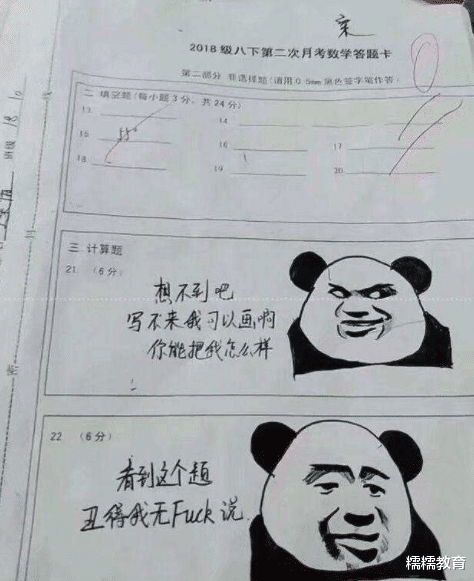 2018级八下第二次月考数学答题卡
第二部分 非选择题(请用0.5mm黑色签字笔作答)
二 填空题(每小题3分，共24分)
13
14
15 55°
16
17
18
19
20
三 计算题
21 (6分)
想不到吧
写不来我可以画啊
你能把我怎么样
22 (6分)
看到这个题
丑得我无Fuck说
班级
糯糯教育